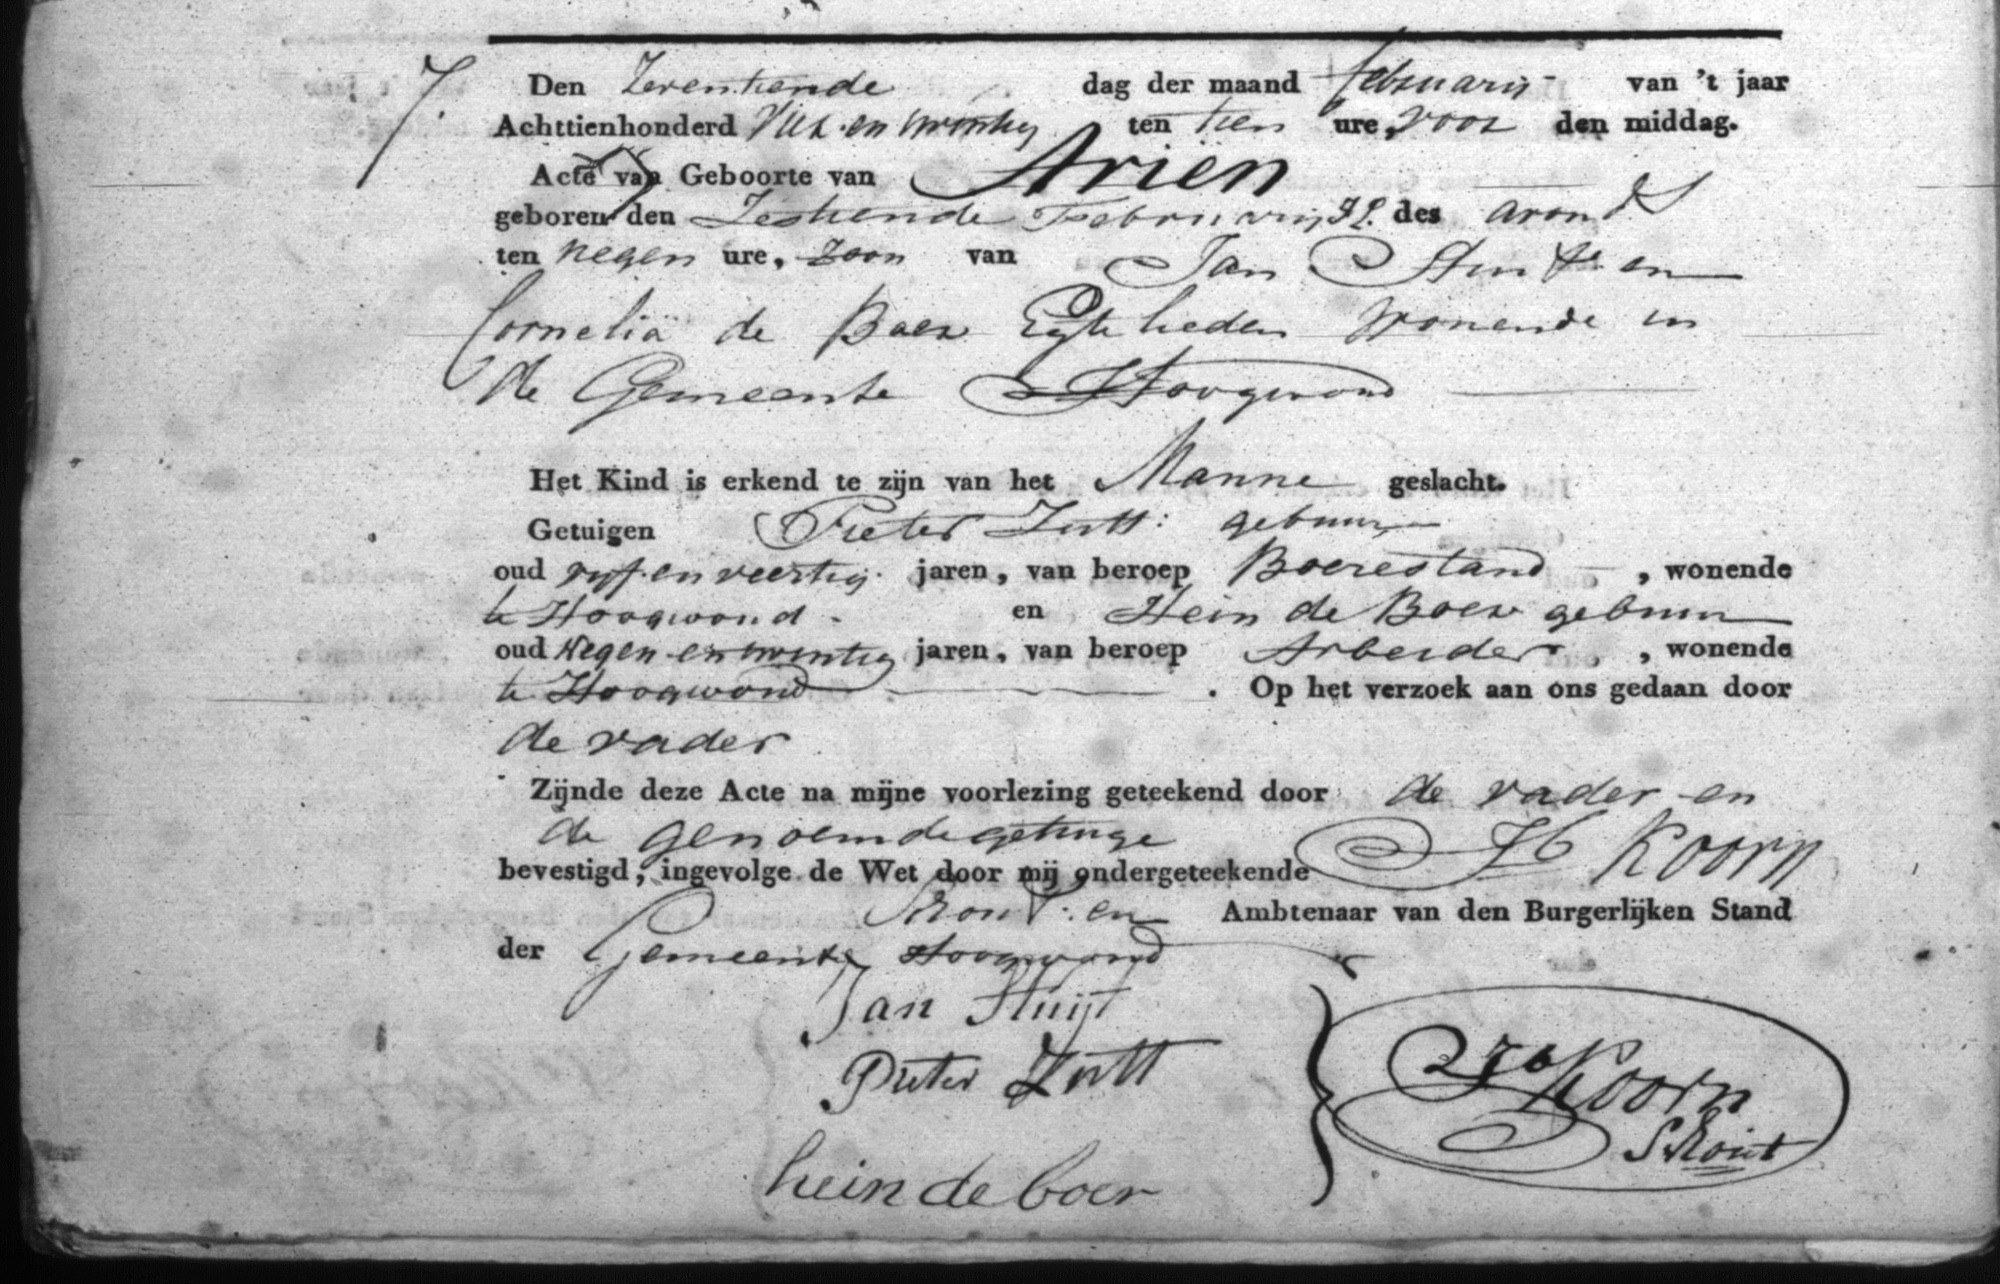 7.
Den Zeventiende dag der maand februarij van 't jaar
Achttienhonderd Vier en twintig ten tien ure, voor den middag.
Acte van Geboorte van Ariën
geboren den Zestiende Februarij Jl. des avonds
ten negen ure, zoon van Jan Stuijt en
Cornelia de Boer Egtelieden Wonende in
de Gemeente Hoogwoud
Het Kind is erkend te zijn van het Manne geslacht.
Getuigen Pieter Zutt: gebuur
oud vyf en veertig jaren, van beroep Boerestand, wonende
te Hoogwoud. en Hein de Boer gebuur
oud Negen en twintig jaren, van beroep Arbeider, wonende
te Hoogwoud. Op het verzoek aan ons gedaan door
de vader
Zijnde deze Acte na mijne voorlezing geteekend door de vader en
de genoemde getuige
bevestigd, ingevolge de Wet door mij ondergeteekende Koorn
Schout: en Ambtenaar van den Burgerlijken Stand
der Gemeente Hoogwoud
Jan Stuijt
Pieter Zutt
Koorn
Schout
hein de boer